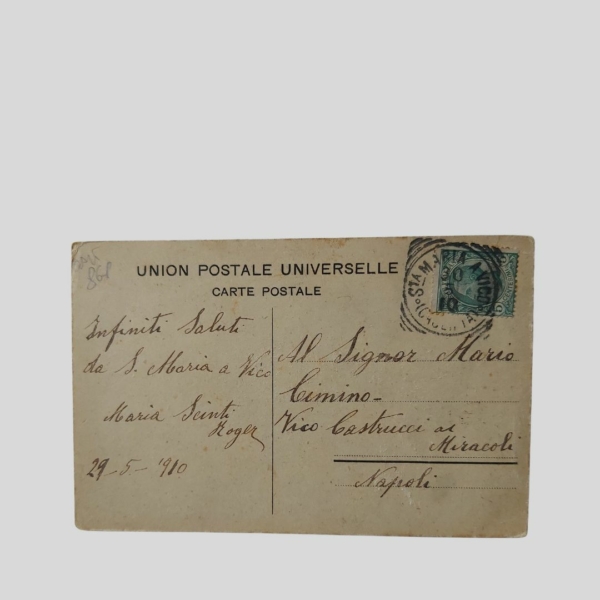 UNION POSTALE UNIVERSELLE
CARTE POSTALE
Infiniti Saluti
da S. Maria a Vico
Maria Scinti
Roger
29-5-'910
Al Signor Mario
Cimino-
Vico Castrucci ai
Miracoli
Napoli
STA MARIA A VICO
(CASERTA)
30
5
10